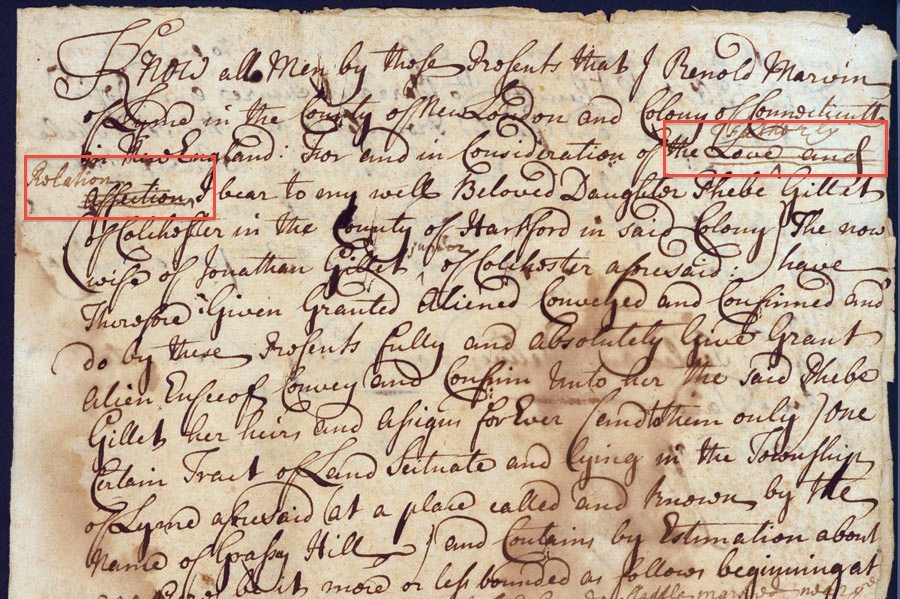 Know all Men by these Presents that I Renold Marvin
of Lyme in the County of New London and Colony of Connecticutt
Fatherly
in New England: For and in Consideration of the Love and
Relation
affection I bear to my well Beloved Daughter Phebe Gillet
of Colchester in the County of Hartford in said Colony (The now
junior
wife of Jonathan Gillet of Colchester aforesaid:) have
Therefore Given Granted Aliened Conveyed and Confirmed and
do by these Presents fully and absolutely Give Grant
Alien Enfeeof Convey and Confirm Unto her the said Phebe
Gillet her heirs and Assigns for Ever (and to them only) One
Certain Tract of Land Scituate and lying in the Township
of Lyme aforesaid at a place called and known by the
Name of Grassy Hill and Contains by Estimation about
be it more or less bounded as follows beginning at
marked